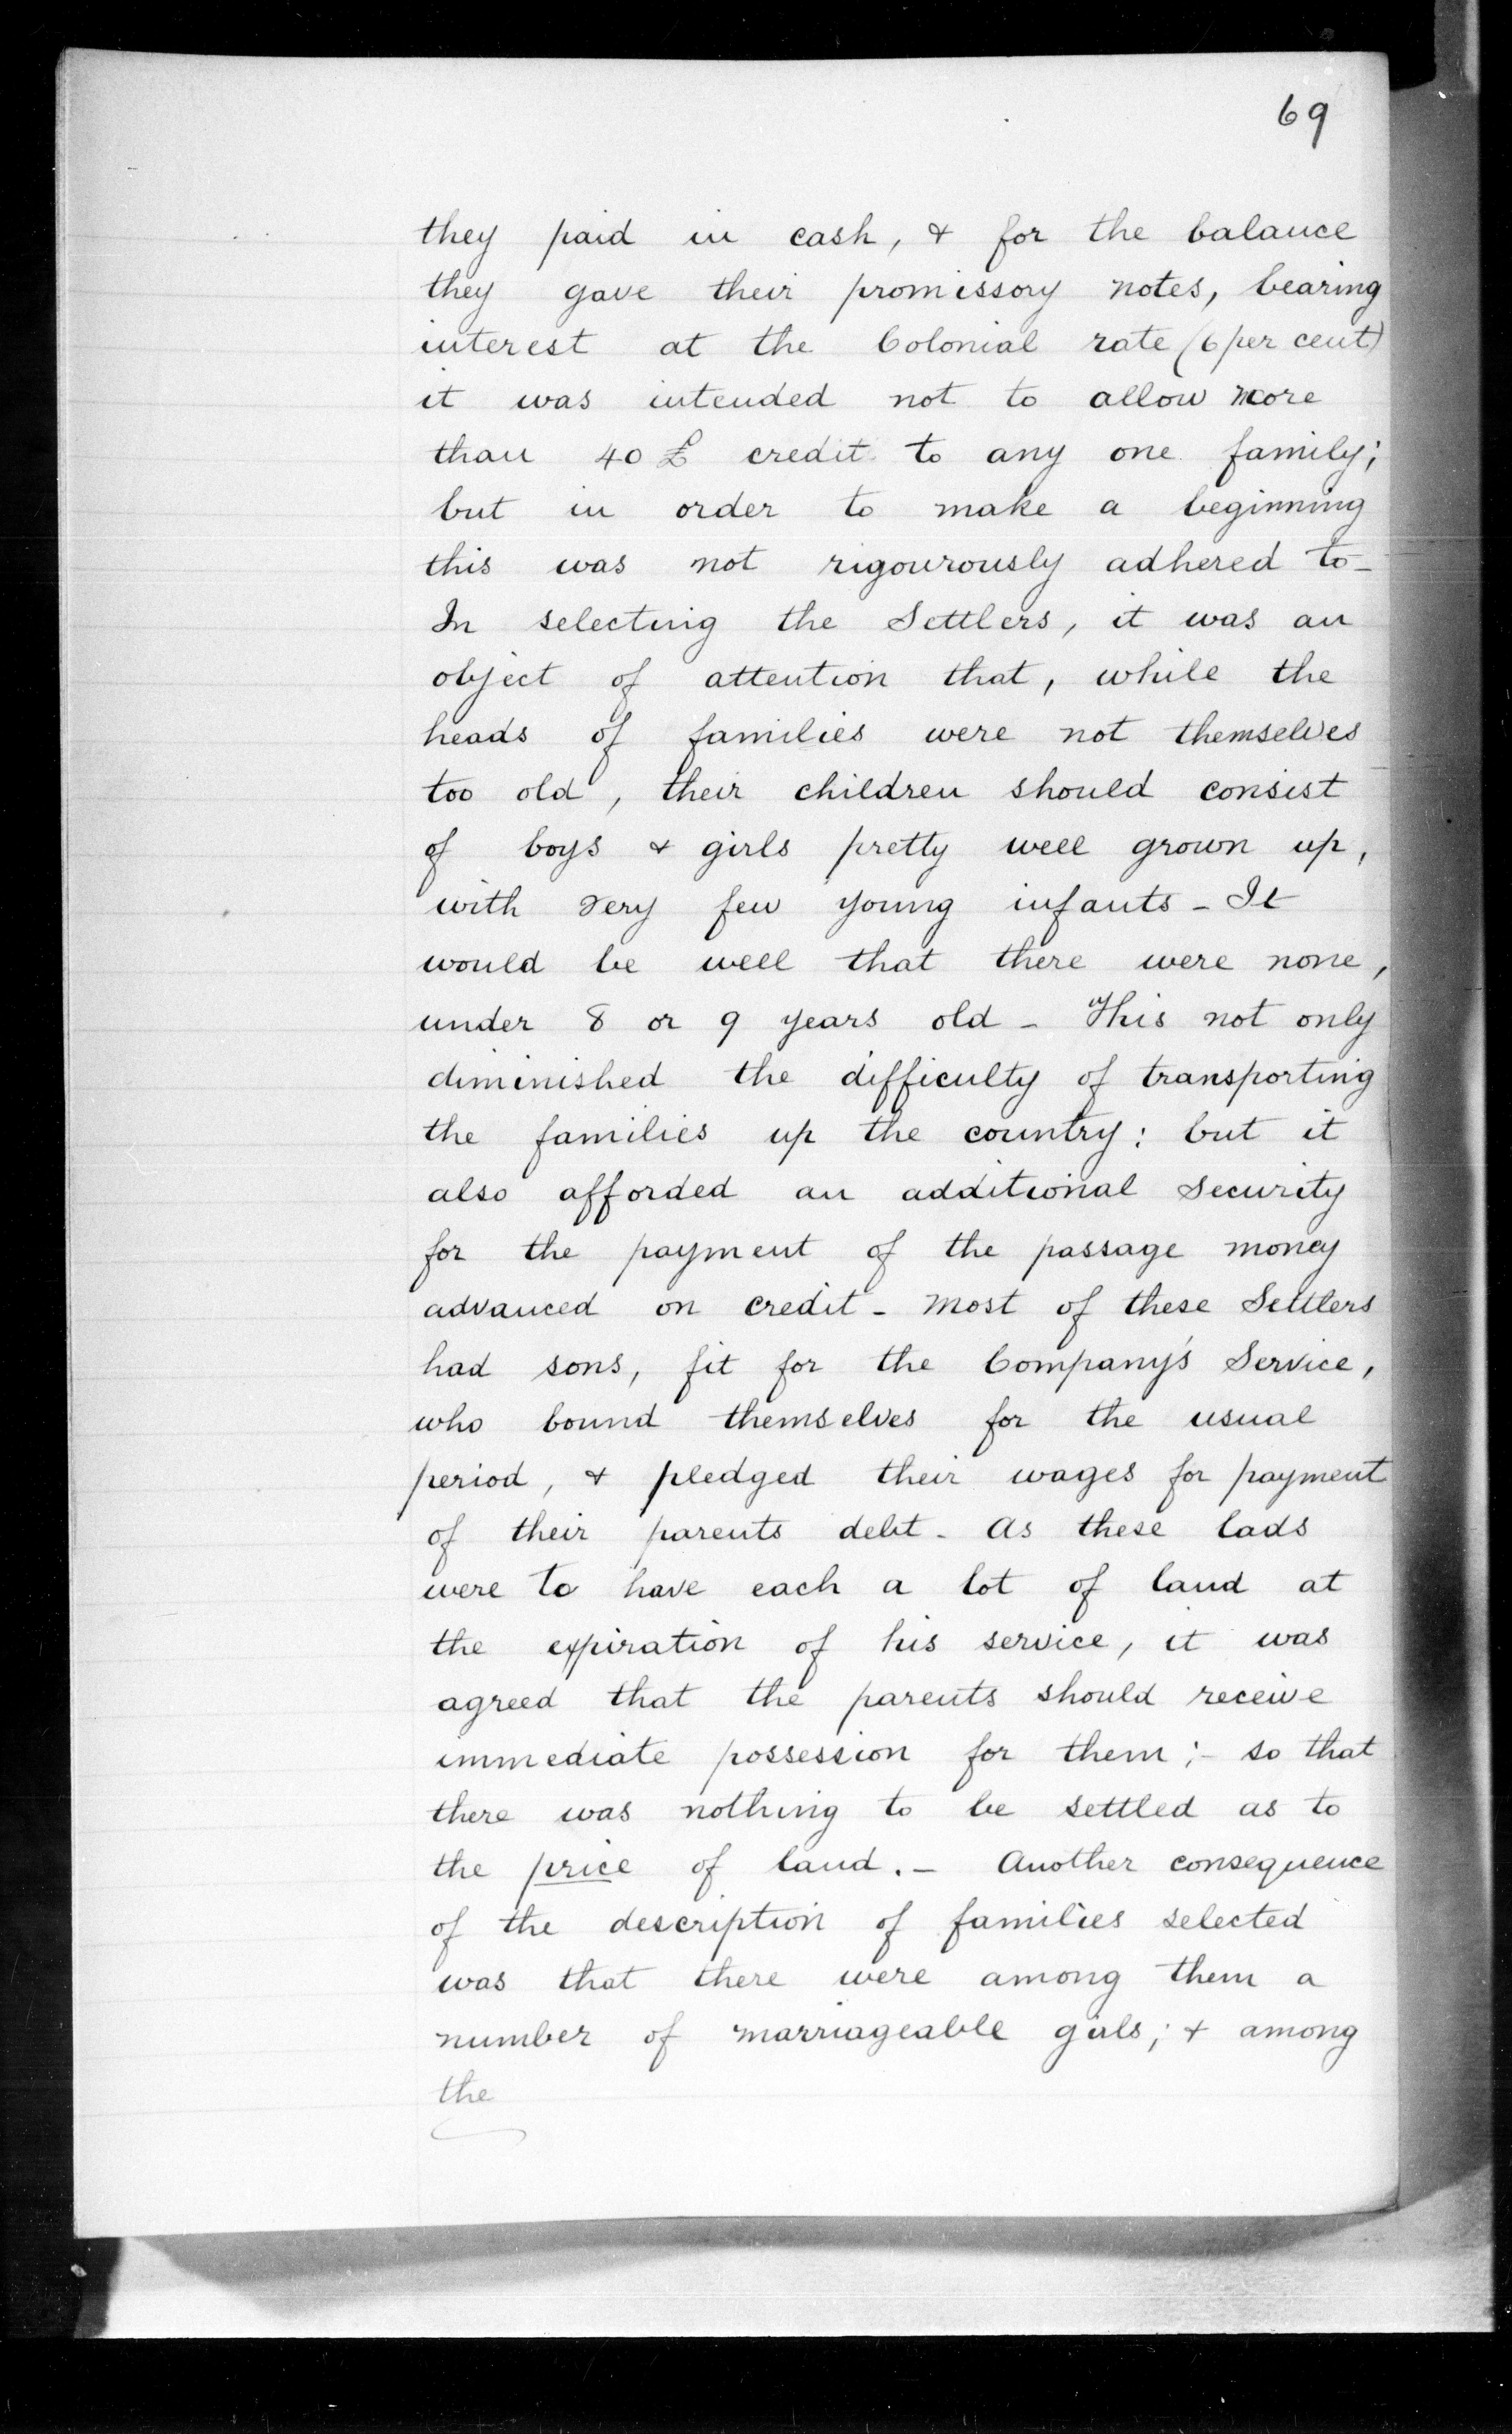 69
they paid in cash, & for the balance
they gave their promissory notes, bearing
interest at the Colonial rate (6 per cent)
it was intended not to allow more
than 40 £ credit to any one family;
but in order to make a beginning
this was not rigourously adhered to -
In selecting the Settlers, it was an
object of attention that, while the
heads of families were not themselves
too old, their children should consist
of boys & girls pretty well grown up,
with very few young infants - It
would be well that there were none,
under 8 or 9 years old - This not only
diminished the difficulty of transporting
the families up the country: but it
also afforded an additional Security
for the payment of the passage money
advanced on credit - Most of these Settlers
had sons, fit for the Company's Service,
who bound themselves for the usual
period, & pledged their wages for payment
of their parents debt - As these lads
were to have each a lot of land at
the expiration of his service, it was
agreed that the parents should receive
immediate possession for them; - so that
there was nothing to be settled as to
the price of land. - Another consequence
of the description of families selected
was that there were among them a
number of marriageable girls; & among
the